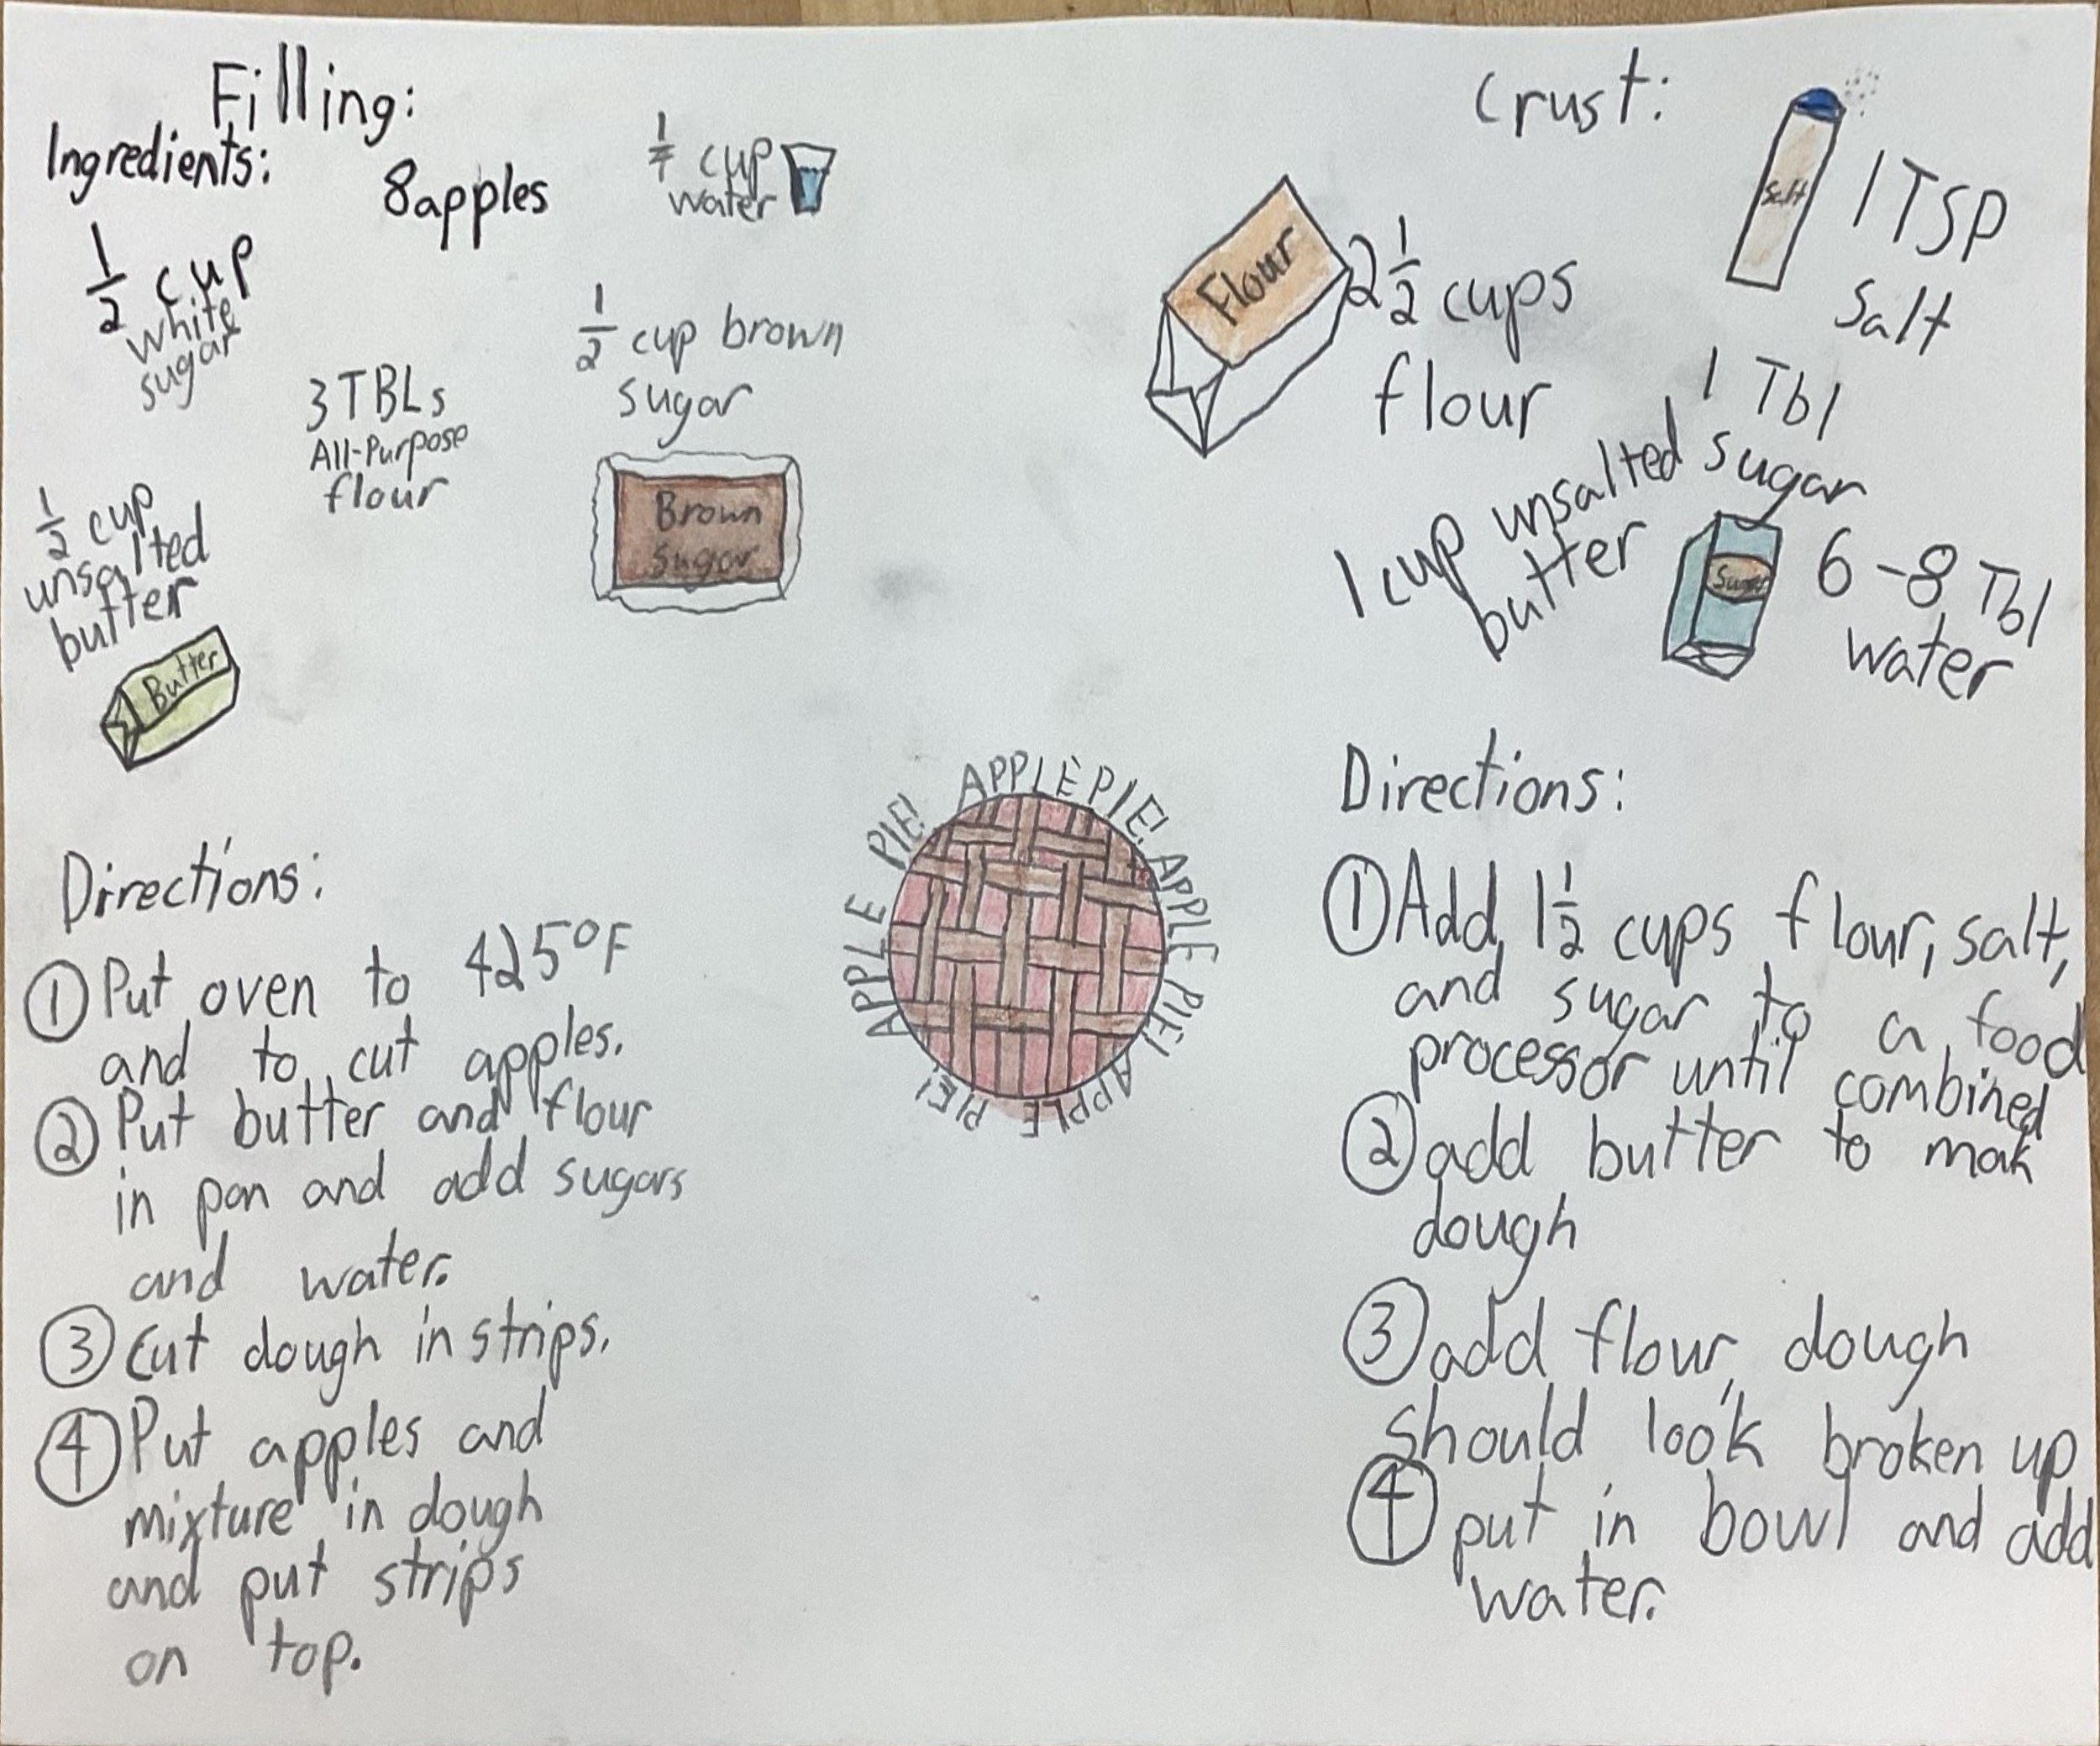 Filling:
Ingredients:
8 apples
1/4 cup
water
1/2 cup
white
sugar
3 TBLs
All-Purpose
flour
1/2 cup brown
sugar
Brown
Sugar
1/2 cup
unsalted
butter
Butter
Directions:
① Put oven to 425°F
and to cut apples.
② Put butter and flour
in pan and add sugars
and water.
③ Cut dough in strips.
④ Put apples and
mixture in dough
and put strips
on top.
APPLE PIE! APPLE PIE! APPLE PIE! APPLE PIE!
Crust:
Salt
1 TSP
Salt
Flour
2 1/2 cups
flour
1 Tbl
sugar
1 cup unsalted
butter
Sugar
6-8 Tbl
water
Directions:
① Add 1 1/2 cups flour, salt,
and sugar to a food
processor until combined
② add butter to mak
dough
③ add flour, dough
should look broken up
④ put in bowl and add
water.